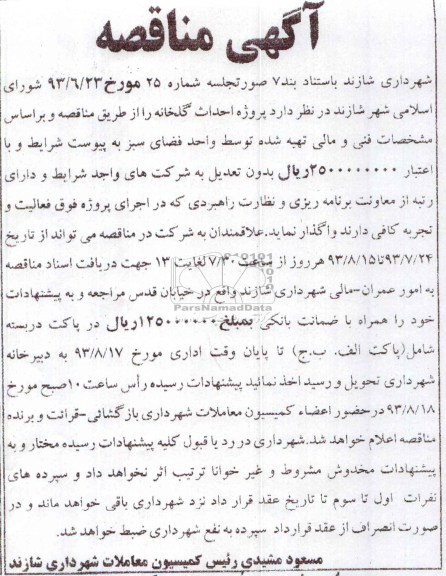 آگهی مناقصه
شهرداری شازند باستناد بند۷ صورتجلسه شماره ۲۵ مورخ ۹۳/۶/۲۳ شورای
اسلامی شهر شازند در نظر دارد پروژه احداث گلخانه را از طریق مناقصه و براساس
مشخصات فنی و مالی تهیه شده توسط واحد فضای سبز به پیوست شرایط و با
اعتبار ۲۵۰۰۰۰۰۰۰۰ریال بدون تعدیل به شرکت های واجد شرایط و دارای
رتبه از معاونت برنامه ریزی و نظارت راهبردی که در اجرای پروژه فوق فعالیت و
تجربه کافی دارند واگذار نماید.علاقمندان به شرکت در مناقصه می تواند از تاریخ
۹۳/۷/۲۴تا ۹۳/۸/۱۵ هرروز از ساعت ۷/۳۰ لغایت ۱۳ جهت دریافت اسناد مناقصه
به امور عمران-مالی شهرداری شازند واقع در خیابان قدس مراجعه و به پیشنهادات
ParsNamadData
خود را همراه با ضمانت بانکی بمبلغ۱۲۵۰۰۰۰۰۰ریال در پاکت دربسته
شامل(پاکت الف. ب.ج) تا پایان وقت اداری مورخ ۹۳/۸/۱۷ به دبیرخانه
شهرداری تحویل و رسید اخذ نمائید پیشنهادات رسیده رأس ساعت ۱۰صبح مورخ
۹۳/۸/۱۸ درحضور اعضاء کمیسیون معاملات شهرداری بازگشائی-قرائت و برنده
مناقصه اعلام خواهد شد.شهرداری در رد یا قبول کلیه پیشنهادات رسیده مختار و به
پیشنهادات مخدوش مشروط و غیر خوانا ترتیب اثر نخواهد داد و سپرده های
نفرات اول تا سوم تا تاریخ عقد قرار داد نزد شهرداری باقی خواهد ماند و در
صورت انصراف از عقد قرارداد سپرده به نفع شهرداری ضبط خواهد شد.
مسعود مشیدی رئیس کمیسیون معاملات شهرداری شازند